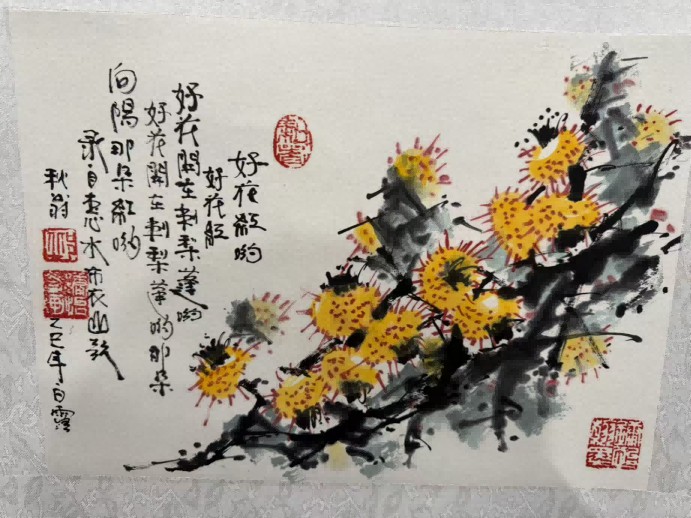 好花紅哟
好花紅
好花開在刺梨蓬哟
好花開在刺梨蓬哟那朵
向陽那朵紅哟
录自惠水布衣山歌
秋翁
乙巳年白露